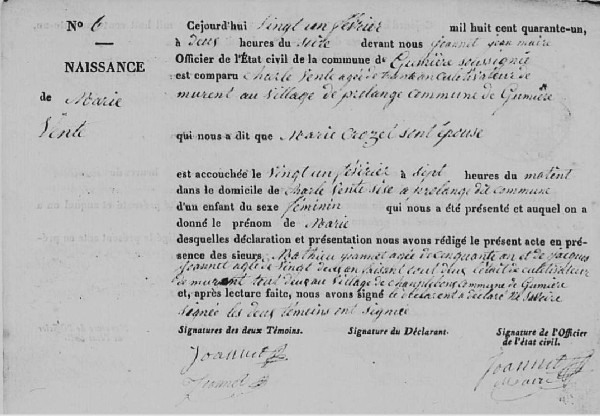 Nº 6
NAISSANCE
de Marie
Vente
Cejourd'hui Vingt un février mil huit cent quarante-un,
à deus heures du Soire devant nous Joannet jean maire
Officier de l'État civil de la commune de Gumière soussigné
est comparu Charle Vente agée de trante an cultivateur de
murent au Village de prolange commune de Gumière
qui nous a dit que Marie Crozet sont épouse
est accouchée le Vingt un février à sept heures du matent
dans le domicile de Charle Vente a prolange dit commune
d'un enfant du sexe féminin qui nous a été présenté et auquel on a
donné le prénom de Marie
desquelles déclaration et présentation nous avons rédigé le présent acte en pré-
sence des sieurs Mathieu joannet agée de cinquante an et de jacques
Joannet agée de Vingt deus an fessent tout deus l'état de cultivateur
de murant tout deus au Village de commune de Gumière
et, après lecture faite, nous avons signé le déclarent a déclaré
signée les deus témoins ont signée
Signatures des deux Témoins. Signature du Déclarant. Signature de l'Officier
de l'état civil.
Joannet Joannet
Joannet Maire